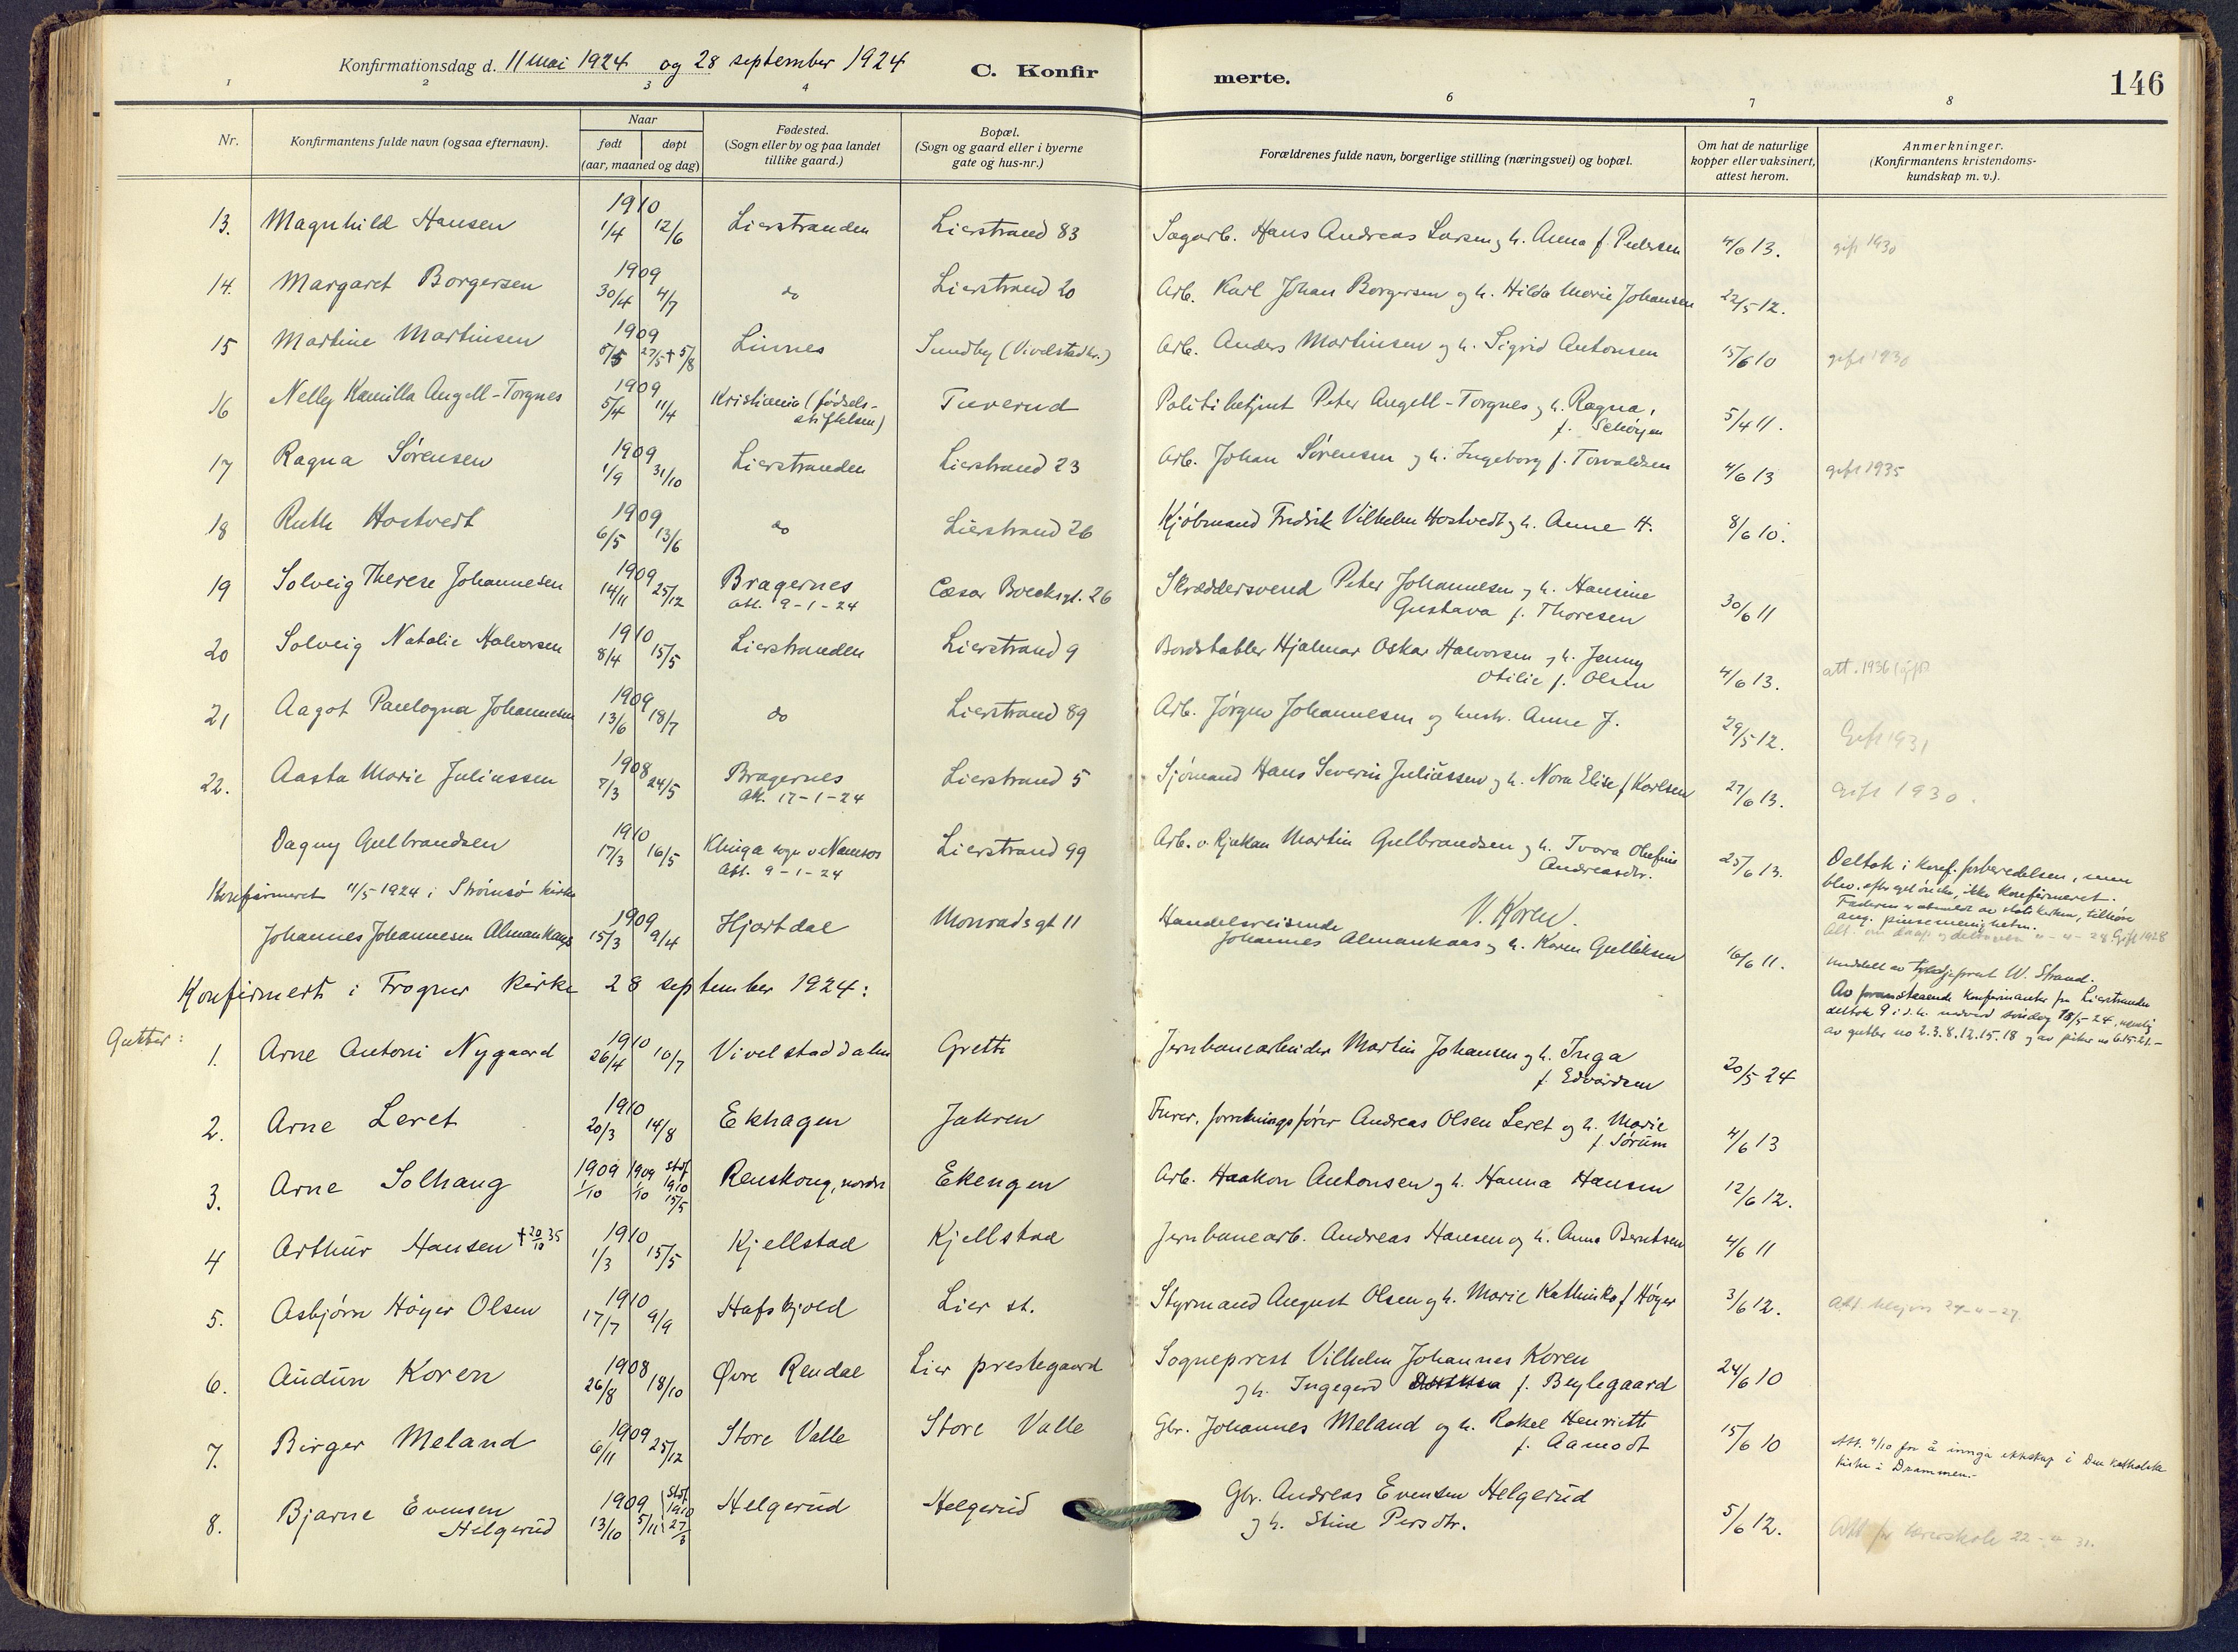 Konfirmationsdag d. 11 mai 1924 og 28 september 1924 C. Konfir merte. 146
1 2 3 4 6 7 8
Nr. Konfirmantens fulde navn (ogsaa efternavn). Naar født døpt (aar, maaned og dag) Fødested. (Sogn eller by og paa landet tillike gaard.) Bopæl. (Sogn og gaard eller i byerne gate og hus-nr.) Forældrenes fulde navn, borgerlige stilling (næringsvei) og bopæl. Om hat de naturlige kopper eller vaksinert, attest herom. Anmerkninger. (Konfirmantens kristendoms-kundskap m. v.).
13. Magnhild Hansen 1910 1/4 12/6 Lierstranden Lierstrand 83 Sagarb. Hans Andreas Larsen og h. Anna f. Pedersen 4/6 13. gift 1930
14. Margaret Borgersen 1909 30/4 4/7 do Lierstrand 20 Arb. Karl Johan Borgersen og h. Hilda Marie Johansen 22/5 12.
15 Martine Martinsen 1909 8/5 27/5 + 5/8 Linnes Sundby (Vivelstadkr.) Arb. Anders Martinsen og h. Sigrid Antonsen 15/6 10 gift 1930
16 Nelly Kamilla Angell-Torgnes 1909 5/4 11/4 Kristiania (fødsels-
stiftelsen) Tuverud Politibetjent Peter Angell-Torgnes og h. Ragna,
f. 5/4 11.
17 Ragna Sørensen 1909 1/9 31/10 Lierstranden Lierstrand 23 Arb. Johan Sørensen og h. Ingeborg f. Torvaldsen 4/6 13 gift 1935
18 Ruth Hostvedt 1909 6/5 13/6 do Lierstrand 26 Kjøbmand Fredrik Vilhelm Hostvedt og h. Anne H. 8/6 10.
19 Solveig Therese Johannesen 1909 14/11 25/12 Bragernes
att. 9-1-24 Cæsar Boecksgt. 26 Skræddersvend Peter Johannesen og h. Hansine
Gustava f. Thoresen 30/6 11
20 Solveig Natalie Halvorsen 1910 8/4 15/5 Lierstranden Lierstrand 9 Bordstabler Hjalmar Oskar Halvorsen og h. Jenny
Otilie f. Olsen 4/6 13. att. 1936 (gift)
21 Aagot Paulogna Johannesen 1909 13/6 18/7 do Lierstrand 89 Arb. Jørgen Johannesen og hustr. Anne J. 29/5 12. Gift 1931
22. Aasta Marie Juliussen 1908 7/3 24/5 Bragernes
Att. 17-1-24 Lierstrand 5 Sjømand Hans Severin Juliussen og h. Nora Elise f Karlsen 27/6 13. Gift 1930.
Dagny Gulbrandsen 1910 17/3 16/5 Klinga sogn v Namsos
Att. 9-1-24 Lierstrand 99 Arb. v. Rjukan Martin Gulbrandsen og h. Tvora Olufine
Andreasdtr. 25/6 13. Deltok i konf. forberedelsen, men
blev, efter eget ønske, ikke konfirmeret.
Faderen er utmeldt av statskirken, tilhører
ang. pinsemenigheten.
V. Koren.
Konfirmeret 11/5-1924 i Strømsø kirke
Johannes Johannesen Almankaas 1909 15/3 9/4 Hjartdal Monradsgt 11 Handelsreisende
Johannes Almankaas og h. Karen Gulliksen 16/6 11. Gift 1928
meddelt av W. Strand.
Konfirmert i Frogner kirke 28 september 1924:
Av foranstaaende konfirmanter fra Lierstranden
deltok 9 i d. h. nadverd søndag 18/5-24, nemlig
av gutter no 2.3.8.12.15.18 og av piker no 6.15.21.-
Gutter:
1. Arne Antoni Nygaard 1910 26/4 10/7 Vivelstaddalen Grette Jernbanearbeider Martin Johansen og h. Inga
f. Edvardsen 20/5 24
2. Arne Leret 1910 20/3 14/8 Ekhagen Jahren Furer, forretningsfører Andreas Olsen Leret og h. Marie
f. Sørum 4/6 13
3. Arne Solhaug 1909 1/10 1909 1/10 stdf. 1910 15/5 Renskoug, nordre Ekengen Arb. Haakon Antonsen og h. Hanna Hansen 12/6 12.
4 Arthur Hansen + 20/10 35 1910 1/3 15/5 Kjellstad Kjellstad Jernbanearb. Andreas Hansen og h. Anna Berntsen 4/6 11
5. Asbjørn Høyer Olsen 1910 17/7 9/9 Hafskjold Lier st. Styrmand August Olsen og h. Marie Kathinka f Høyer 3/6 12.
6. Audun Koren 1908 26/8 18/10 Øvre Rendal Lier prestegaard Sogneprest Vilhelm Johannes Koren
og h. Ingegerd f. Beylegaard 24/6 10
7. Birger Meland 1909 6/11 25/12 Store Valle Store Valle Gbr. Johannes Meland og h. Rakel Henriette
f. Aamodt 15/6 10 Att. 4/10 for å inngå ekteskap i Den katholske
kirke i Drammen.-
8. Bjarne Evensen
Helgerud 1909 13/10 5/11 stdf. 1910 27/3 Helgerud Helgerud Gbr. Andreas Evensen Helgerud
og h. Stine Persdtr. 5/6 12.